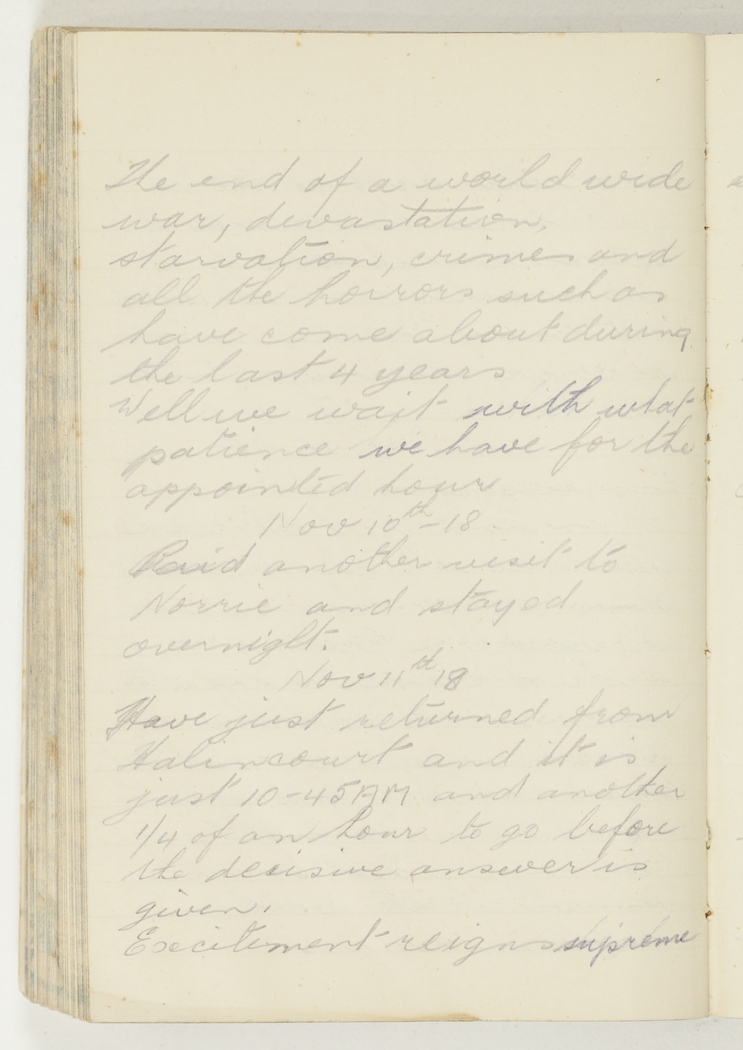 The end of a world wide
war, devastation,
starvation, crimes and
all the horrors such as
have come about during
the last 4 years
Well we wait with what
patience we have for the
appointed hour
Nov 10th-18
Paid another visit to
Norrie and stayed
overnight.
Nov 11th 18
Have just returned from
Halincourt and it is
just 10-45AM and another
1/4 of an hour to go before
the decisive answer is
given.
Excitement reigns supreme